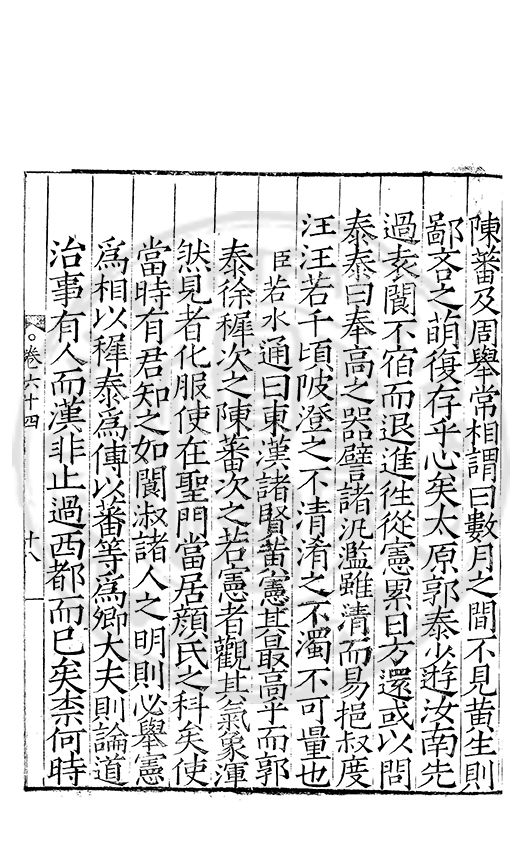 陳蕃及周舉常相謂曰數月之間不見黃生則
鄙吝之萌復存乎心矣太原郭泰少遊汝南先
過袁閬不宿而退進徃從憲累日方還或以問
泰泰曰奉高之器譬諸汎濫雖清而易挹叔度
汪汪若千頃陂澄之不清淆之不濁不可量也
臣若水通曰東漢諸賢黃憲其最高乎而郭
泰徐穉次之陳蕃次之若憲者觀其氣象渾
然見者化服使在聖門當居顏氏之科矣使
當時有君知之如閬叔諸人之明則必舉憲
為相以穉泰為傅以蕃等為卿大夫則論道
治事有人而漢非止過西都而已矣柰何時
卷六十四
十八